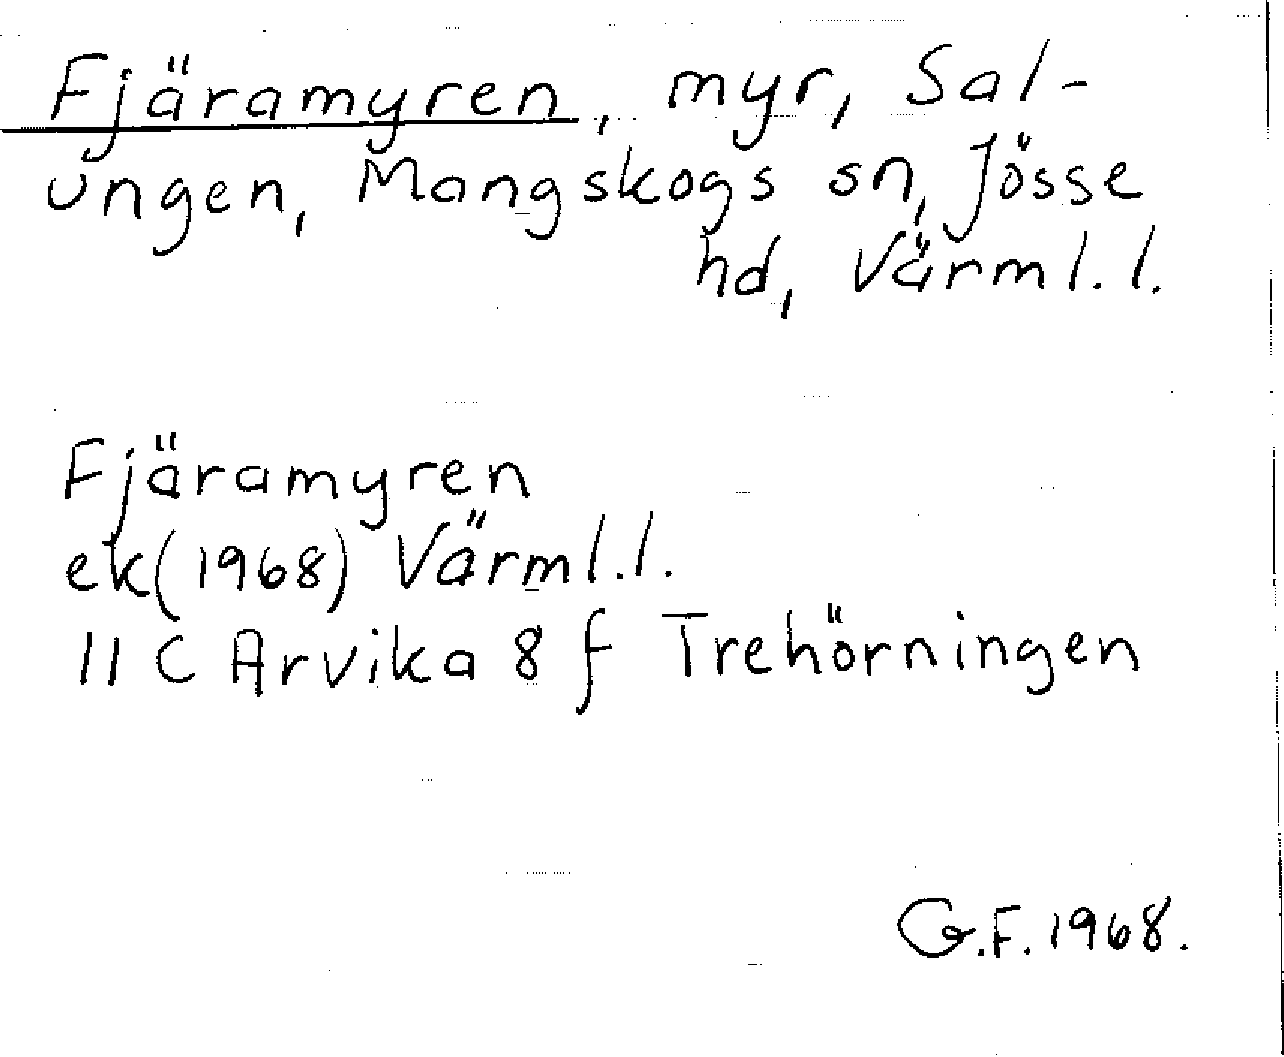 Fjäramyren, myr, Sal-
ungen, Mangskogs sn, Jösse
hd, Värml. l.
Fjäramyren
ek(1968) Värml.l.
11 C Arvika 8 f Trehörningen
G.F. 1968.